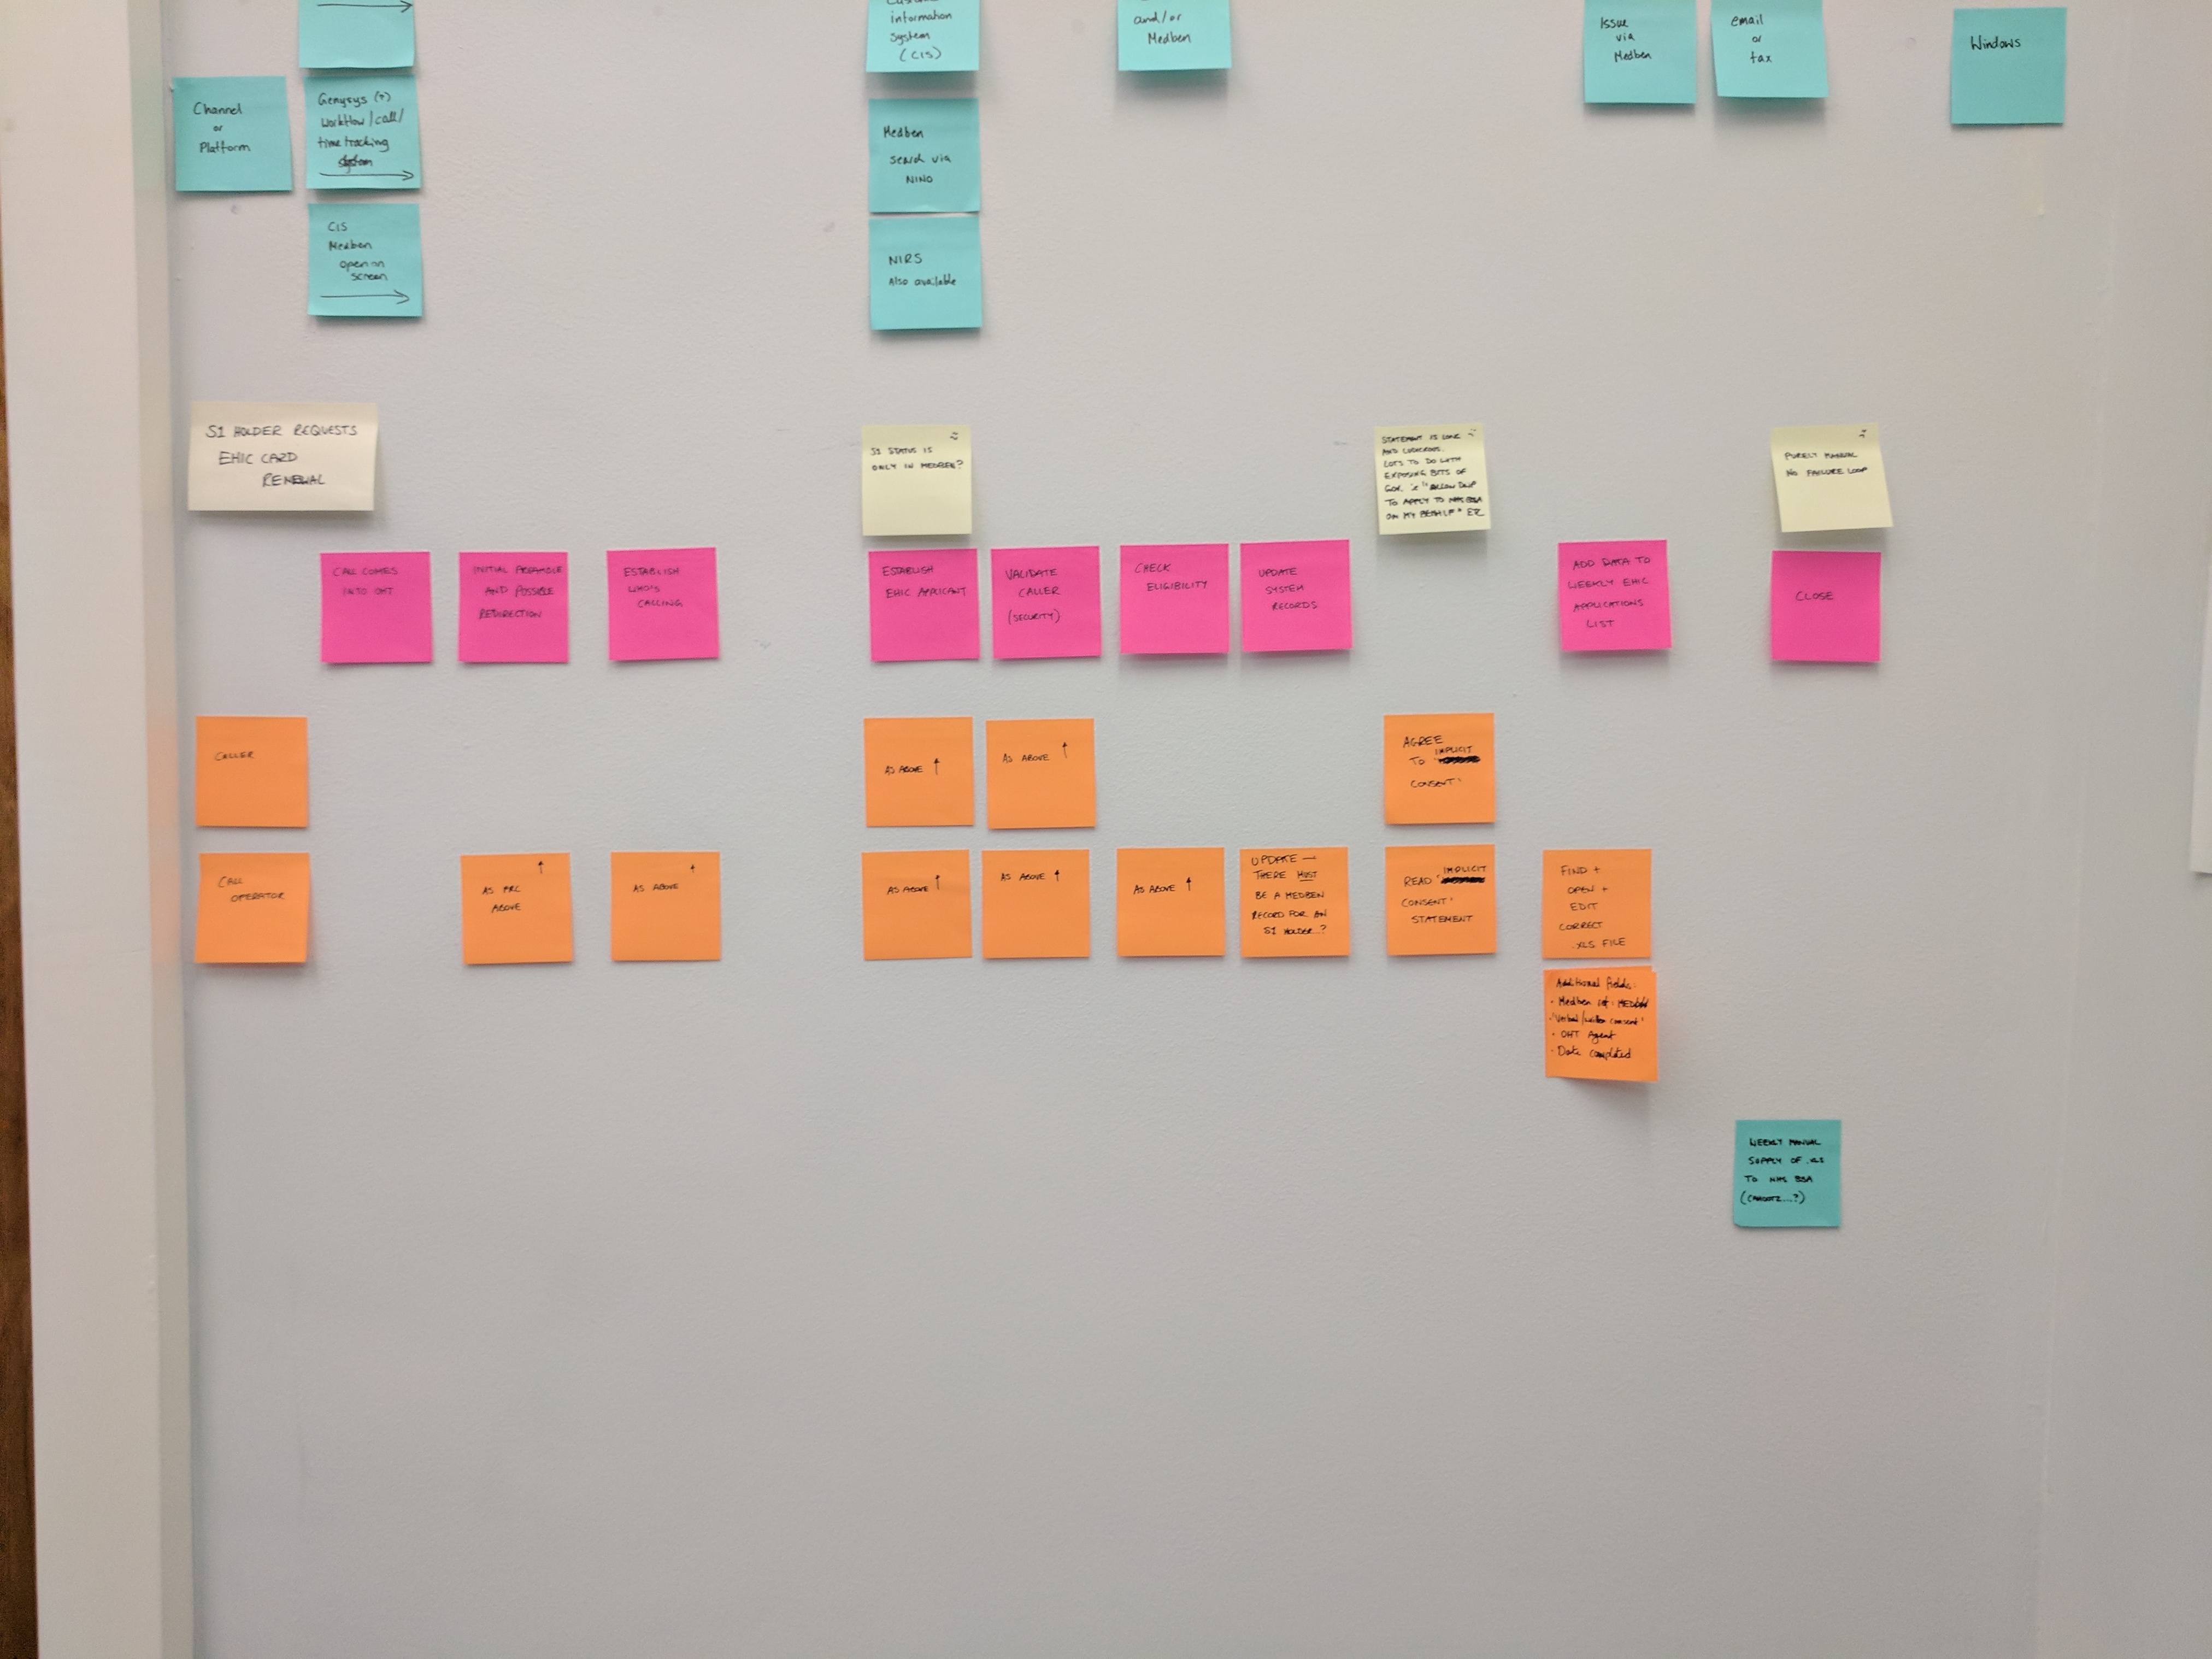 information
system
(CIS)
and/or
Medben
Issue
via
Medben
email
or
fax
Windows
Channel
or
Platform
Genysys (?)
Workflow/call/
time tracking
system
Medben
search via
NINO
CIS
Medben
open on
screen
NIRS
Also available
S1 HOLDER REQUESTS
EHIC CARD
RENEWAL
S1 STATUS IS
ONLY IN MEDBEN?
STATEMENT IS LONG
AND LUDICROUS.
LOTS TO DO WITH
EXPOSING BITS OF
GOV. "ALLOW DWP
TO APPLY TO NHS BSA
ON MY BEHALF"
PURELY MANUAL
NO FAILURE LOOP
CALL COMES
INTO OHT
INITIAL PREAMBLE
AND POSSIBLE
REDIRECTION
ESTABLISH
WHO'S
CALLING
ESTABLISH
EHIC APPLICANT
VALIDATE
CALLER
(SECURITY)
CHECK
ELIGIBILITY
UPDATE
SYSTEM
RECORDS
ADD DATA TO
WEEKLY EHIC
APPLICATIONS
LIST
CLOSE
CALLER
AS ABOVE ↑
AS ABOVE ↑
AGREE
TO 'IMPLICIT
CONSENT'
CALL
OPERATOR
AS PER
ABOVE ↑
AS ABOVE ↑
AS ABOVE ↑
AS ABOVE ↑
AS ABOVE ↑
UPDATE —
THERE MUST
BE A MEDBEN
RECORD FOR AN
S1 HOLDER...?
READ 'IMPLICIT
CONSENT'
STATEMENT
FIND +
OPEN +
EDIT
CORRECT
.XLS FILE
Additional fields:
· Medben ref:
· 'Verbal/written consent'
· OHT Agent
· Date completed
WEEKLY MANUAL
SUPPLY OF .XLS
TO NHS BSA
(CAHOOTZ...?)